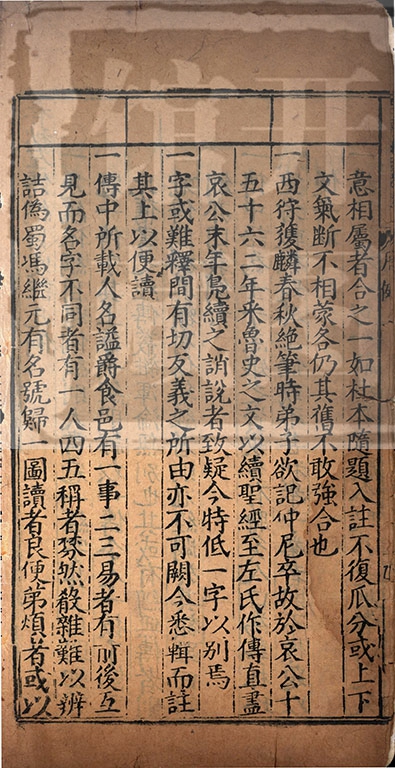 意相屬者合之一如杜本隨題入註不復瓜分或上下
文氣斷不相蒙各仍其舊不敢強合也
一西狩獲麟春秋絕筆時弟子欲記仲尼卒故於哀公十
五十六二年采魯史之文以續聖經至左氏作傳直盡
哀公末年鳧續之誚說者致疑今特低一字以別焉
一字或難釋間有切反義之所由亦不可闕今悉輯而註
其上以便讀
一傳中所載人名謚爵食邑有一事二三易者有前後互
見而名字不同者有一人四五稱者棼然殽雜難以辨
詰偽蜀馮繼元有名號歸一圖讀者良便弟煩者或以